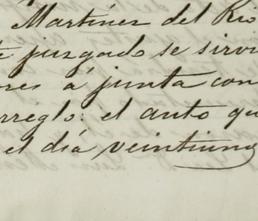 Martínez del Rio
juzgado se sirvi
ores á junta con
rreglo: el auto qu
el día veintiuno